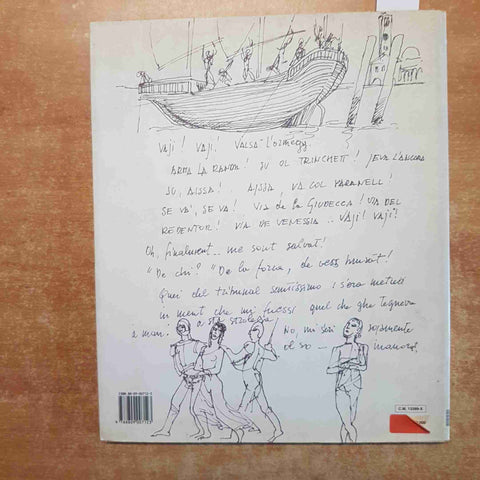 Vaji! Vaji! Valsa l'ormegg.
Arma la randa! Su ol trinchett! Leva l'ancora
Su, aissa! Aissa, va col paranell!
Se va', se va! Via de la Giudecca! Via del
Redentor! Via de Venessia .. Vaji! Vaji!
Oh, finalment.. me sont salvat!
"De chi?" "De la forca, de vess brusat!
Quei del tribunal santissimo i s'era metüdi
in ment che mi fuossi quel che ghe tegneva
a man. a sta strolega
No, mi seri soramente
ol so — inamorat,
C.M. 13399-X